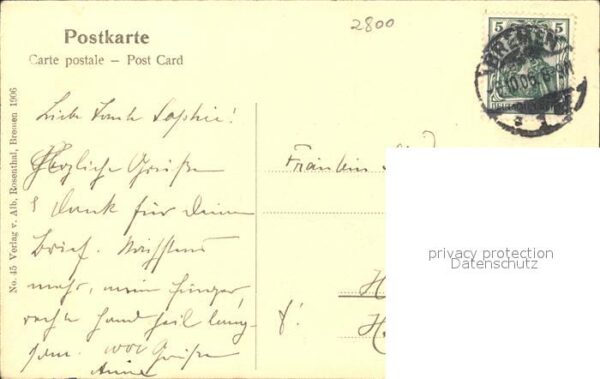 2800
Postkarte
Carte postale – Post Card
5 5
BREMEN
No. 45 Verlag v. Alb. Rosenthal, Bremen 1906
Liebe Tante Sophie!
Herzliche Grüße
& Dank für Deinen
Brief. Nächstens
mehr, mein Finger
rechte Hand heil lang-
sam. 1000 Grüße
Anna
Fräulein
H
H
privacy protection
Datenschutz